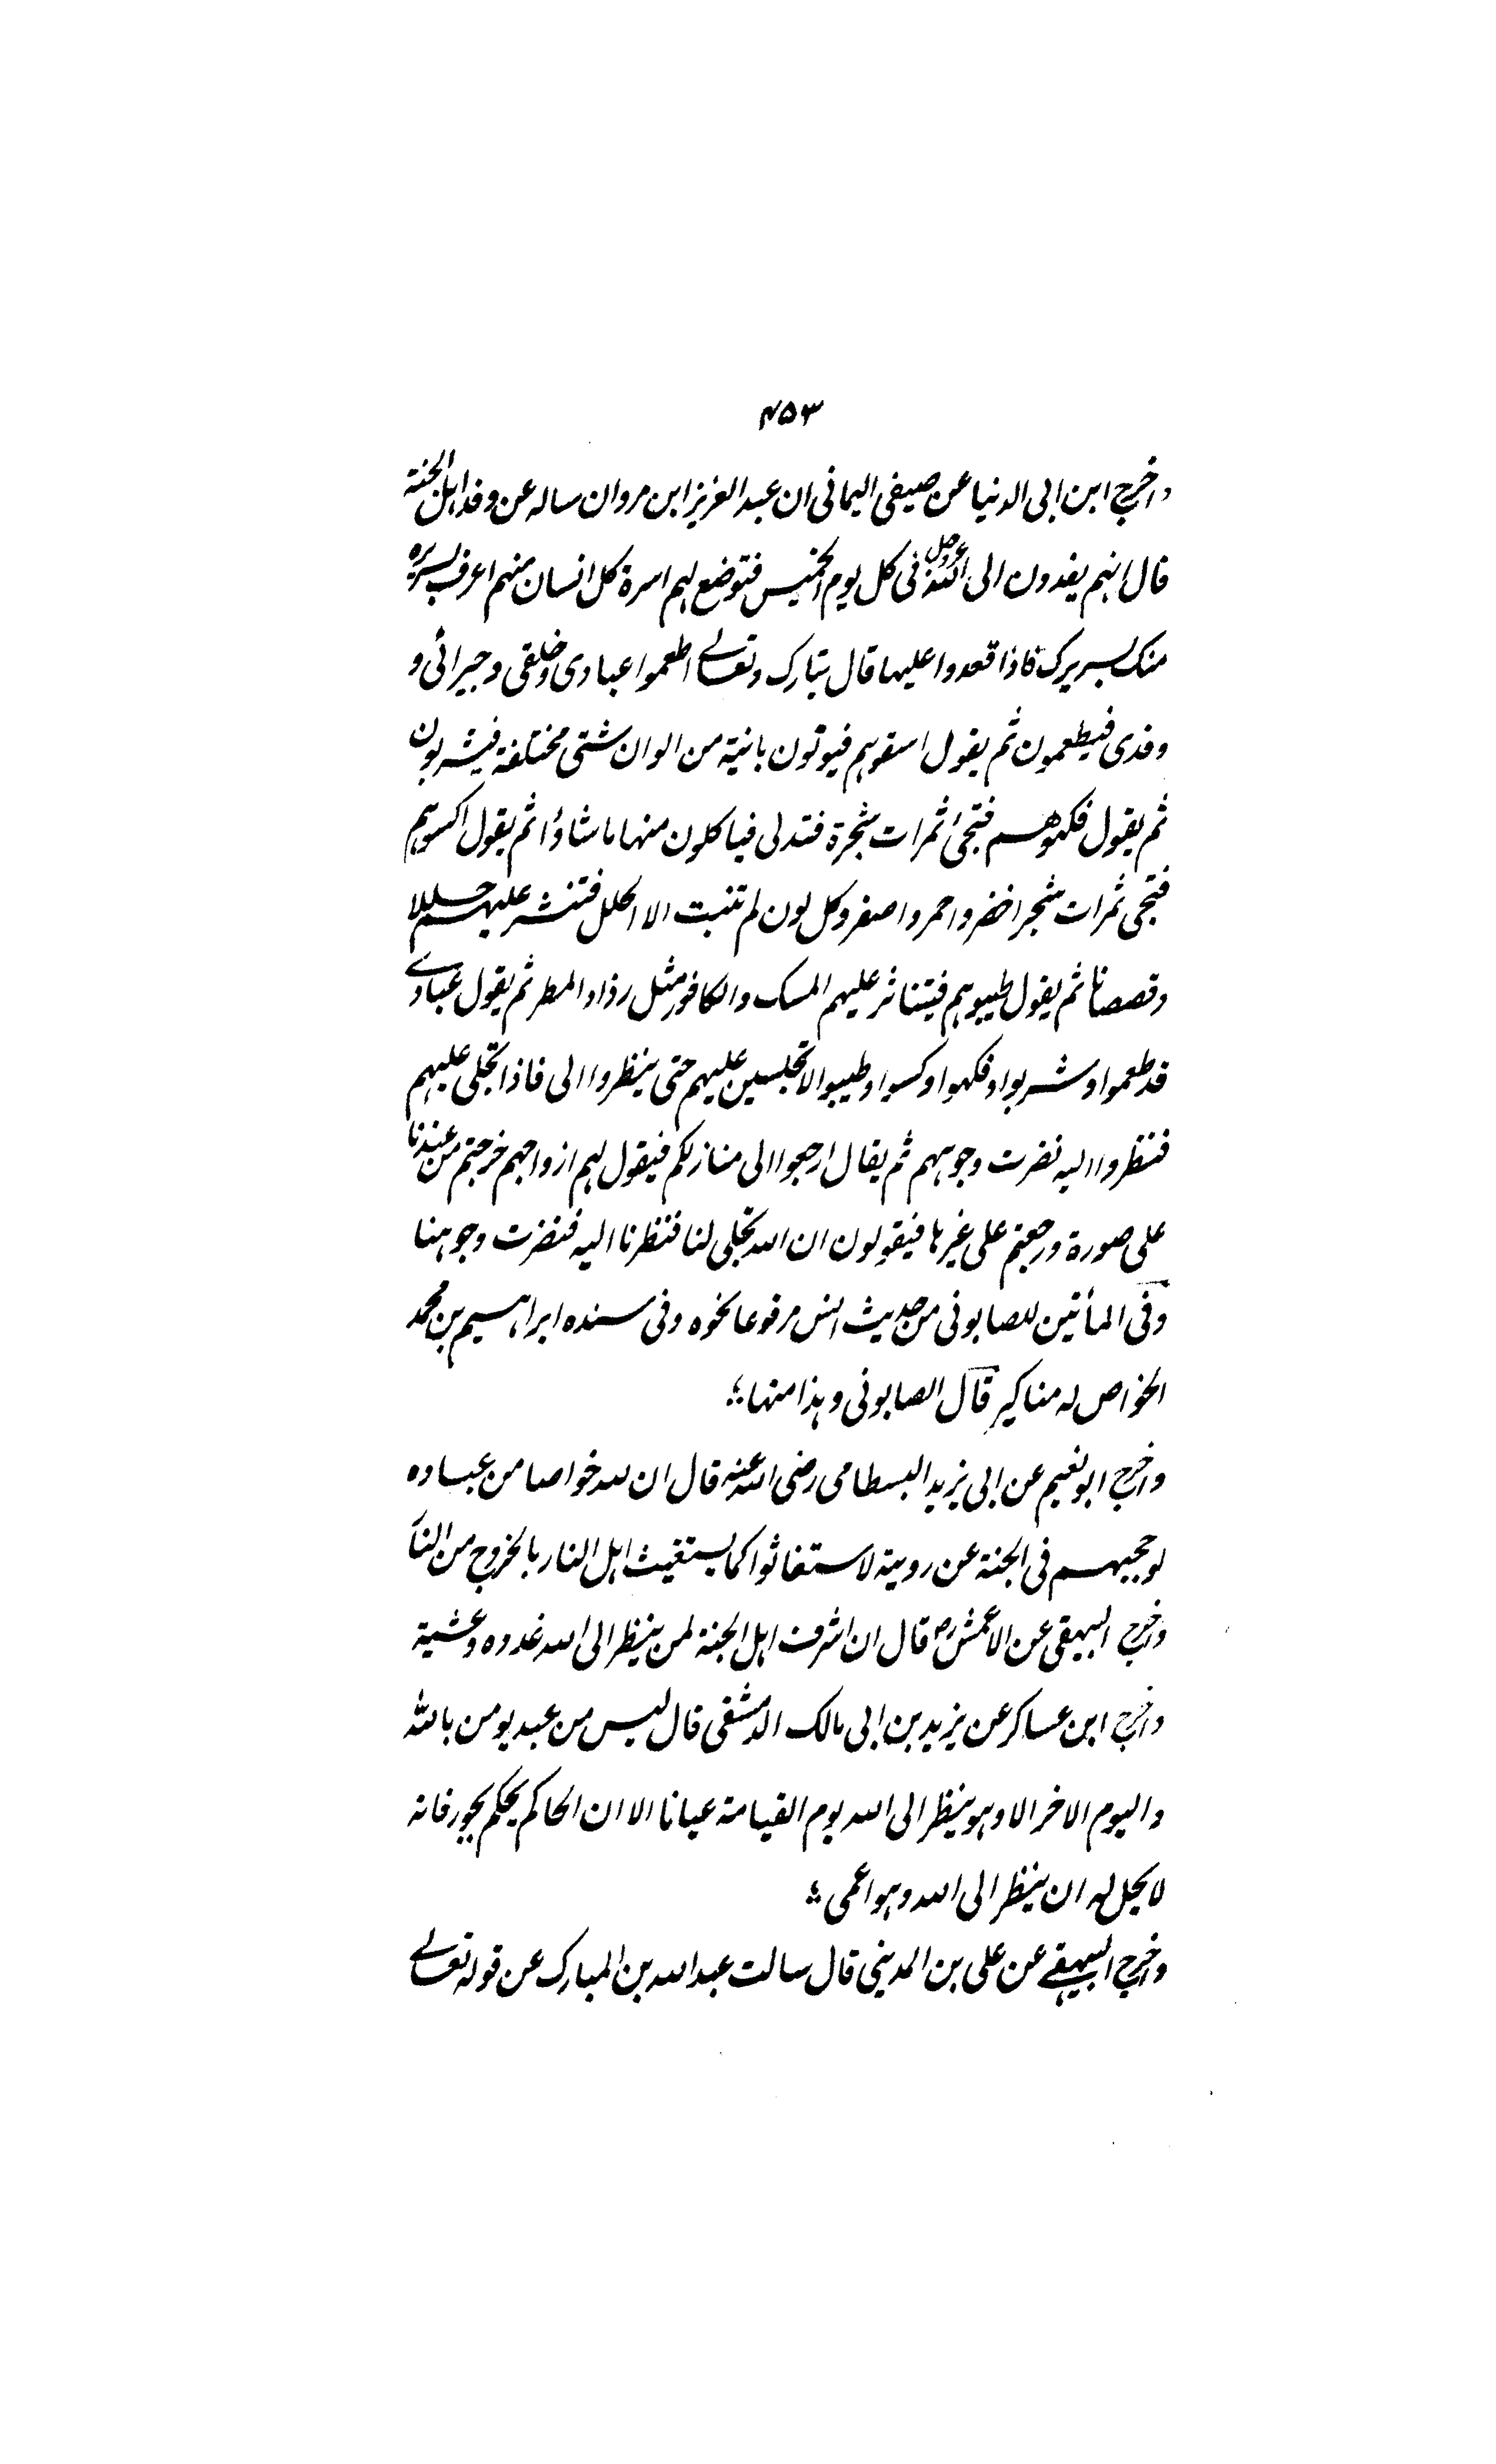 ۴۵۳
واخرج ابن ابی الدنیا عن صیفی الیمانی ان عبد العزیز ابن مروان ساله عن وفد اہل الجنة
قال انہم یفدون الی اللہ عزوجل فی کل یوم الخمیس فتوضع لہم اسرة کل انسان منہم اعرف بسریرہ
منک بسریرک فاذا قعدوا علیہا قال تبارک وتعالے اطعموا عبادی وخلقی وجیرانی و
وفدی فیطعمون ثم یقول اسقوہم فیوتون بانیة من الوان شتی مختلفة فیشربون
ثم یقول فکہوھم فتجئ ثمرات شجرة فتدلی فیاکلون منہا ما شاؤا ثم یقول اکسوہم
فتجی ثمرات شجر اخضر واحمر واصفر وکل لون لم تنبت الا الحلل فتنشر علیہم حللا
وقمصانا ثم یقول طیبوہم فیتناثر علیہم المسک والکافور مثل رذاذ المطر ثم یقول عبادے
قد طعموا وشربوا وفکہوا وکسوا وطیبوا لاتجلین علیہم حتی ینظروا الی فاذا تجلی علیہم
فنظروا الیہ نضرت وجوہہم ثم یقال ارجعوا الی منازلکم فیقول لہم ازواجہم خرجتم من عندنا
علی صورة ورجعتم علی غیرہا فیقولون ان اللہ تجلی لنا فنظرنا الیہ فنضرت وجوہنا
وفی المأتین للصابونی من حدیث انس مرفوعا نحوہ وفی سندہ ابراہیم بن محمد
الخواص لہ مناکیر قال الصابونی وہذا منہا
واخرج ابو نعیم عن ابی یزید البسطامی رضی اللہ عنہ قال ان للہ خواصا من عبادہ
لو حجبہم فی الجنة عن رویة لاستغاثوا کما یستغیث اہل النار بالخروج من النار
واخرج البیہقی عن الاعمش رح قال ان اشرف اہل الجنة لمن ینظر الی اللہ غدوہ وعشیة
واخرج ابن عساکر عن یزید بن ابی مالک الدمشقی قال لیس من عبد یومن باللہ
والیوم الاخر الا وہو ینظر الی اللہ یوم القیامة عیانا الا ان الحاکم یحکم بجور فانہ
لا یحل لہ ان ینظر الی اللہ وہو اعمی
واخرج البیہقے عن علی بن المدینی قال سالت عبد اللہ بن المبارک عن قولہ تعالے